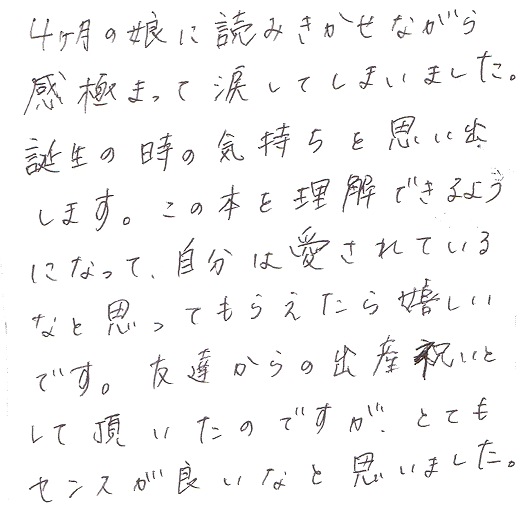 4ヶ月の娘に読みきかせながら
感極まって涙してしまいました。
誕生の時の気持ちを思い出
します。この本を理解できるよう
になって、自分は愛されている
なと思ってもらえたら嬉しい
です。友達からの出産祝いと
して頂いたのですが、とても
センスが良いなと思いました。